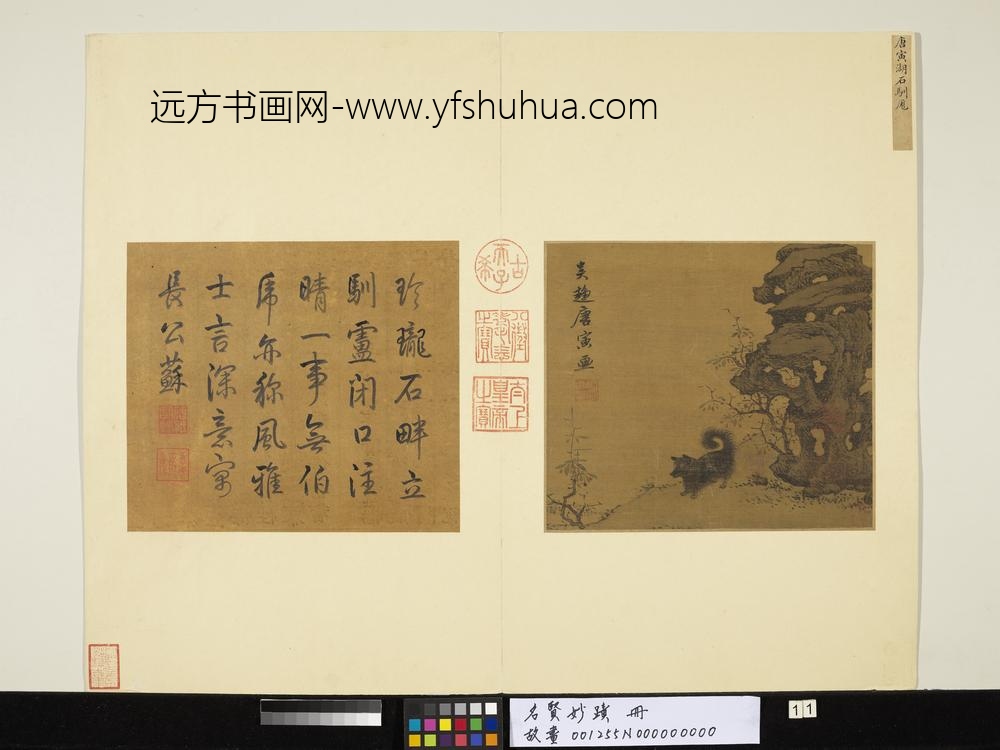 远方书画网-www.yfshuhua.com
唐寅湖石馴尨
吳趨唐寅画
古希天子
八徵耄念之寶
太上皇帝之寶
玲瓏石畔立
馴盧閉口注
睛一事無伯
虎亦稱風雅
士言深意寓
長公蘇
名賢妙蹟 冊
故畫 001255N000000000
11